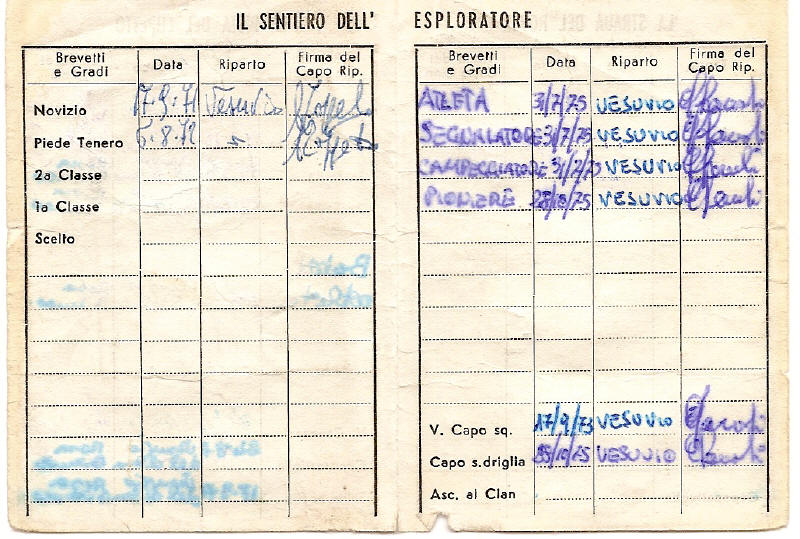 IL SENTIERO DELL' ESPLORATORE
Brevetti e Gradi Data Riparto Firma del Capo Rip.
Novizio 17-9-71 Vesuvio
Piede Tenero 6.8.72 "
2a Classe
1a Classe
Scelto
Brevetti e Gradi Data Riparto Firma del Capo Rip.
ATLETA 31/7/75 VESUVIO
SEGNALATORE 31/7/75 VESUVIO
CAMPEGGIATORE 31/7/75 VESUVIO
PIONIERE 25/10/75 VESUVIO
V. Capo sq. 17/9/73 VESUVIO
Capo s.driglia 25/10/75 VESUVIO
Asc. al Clan